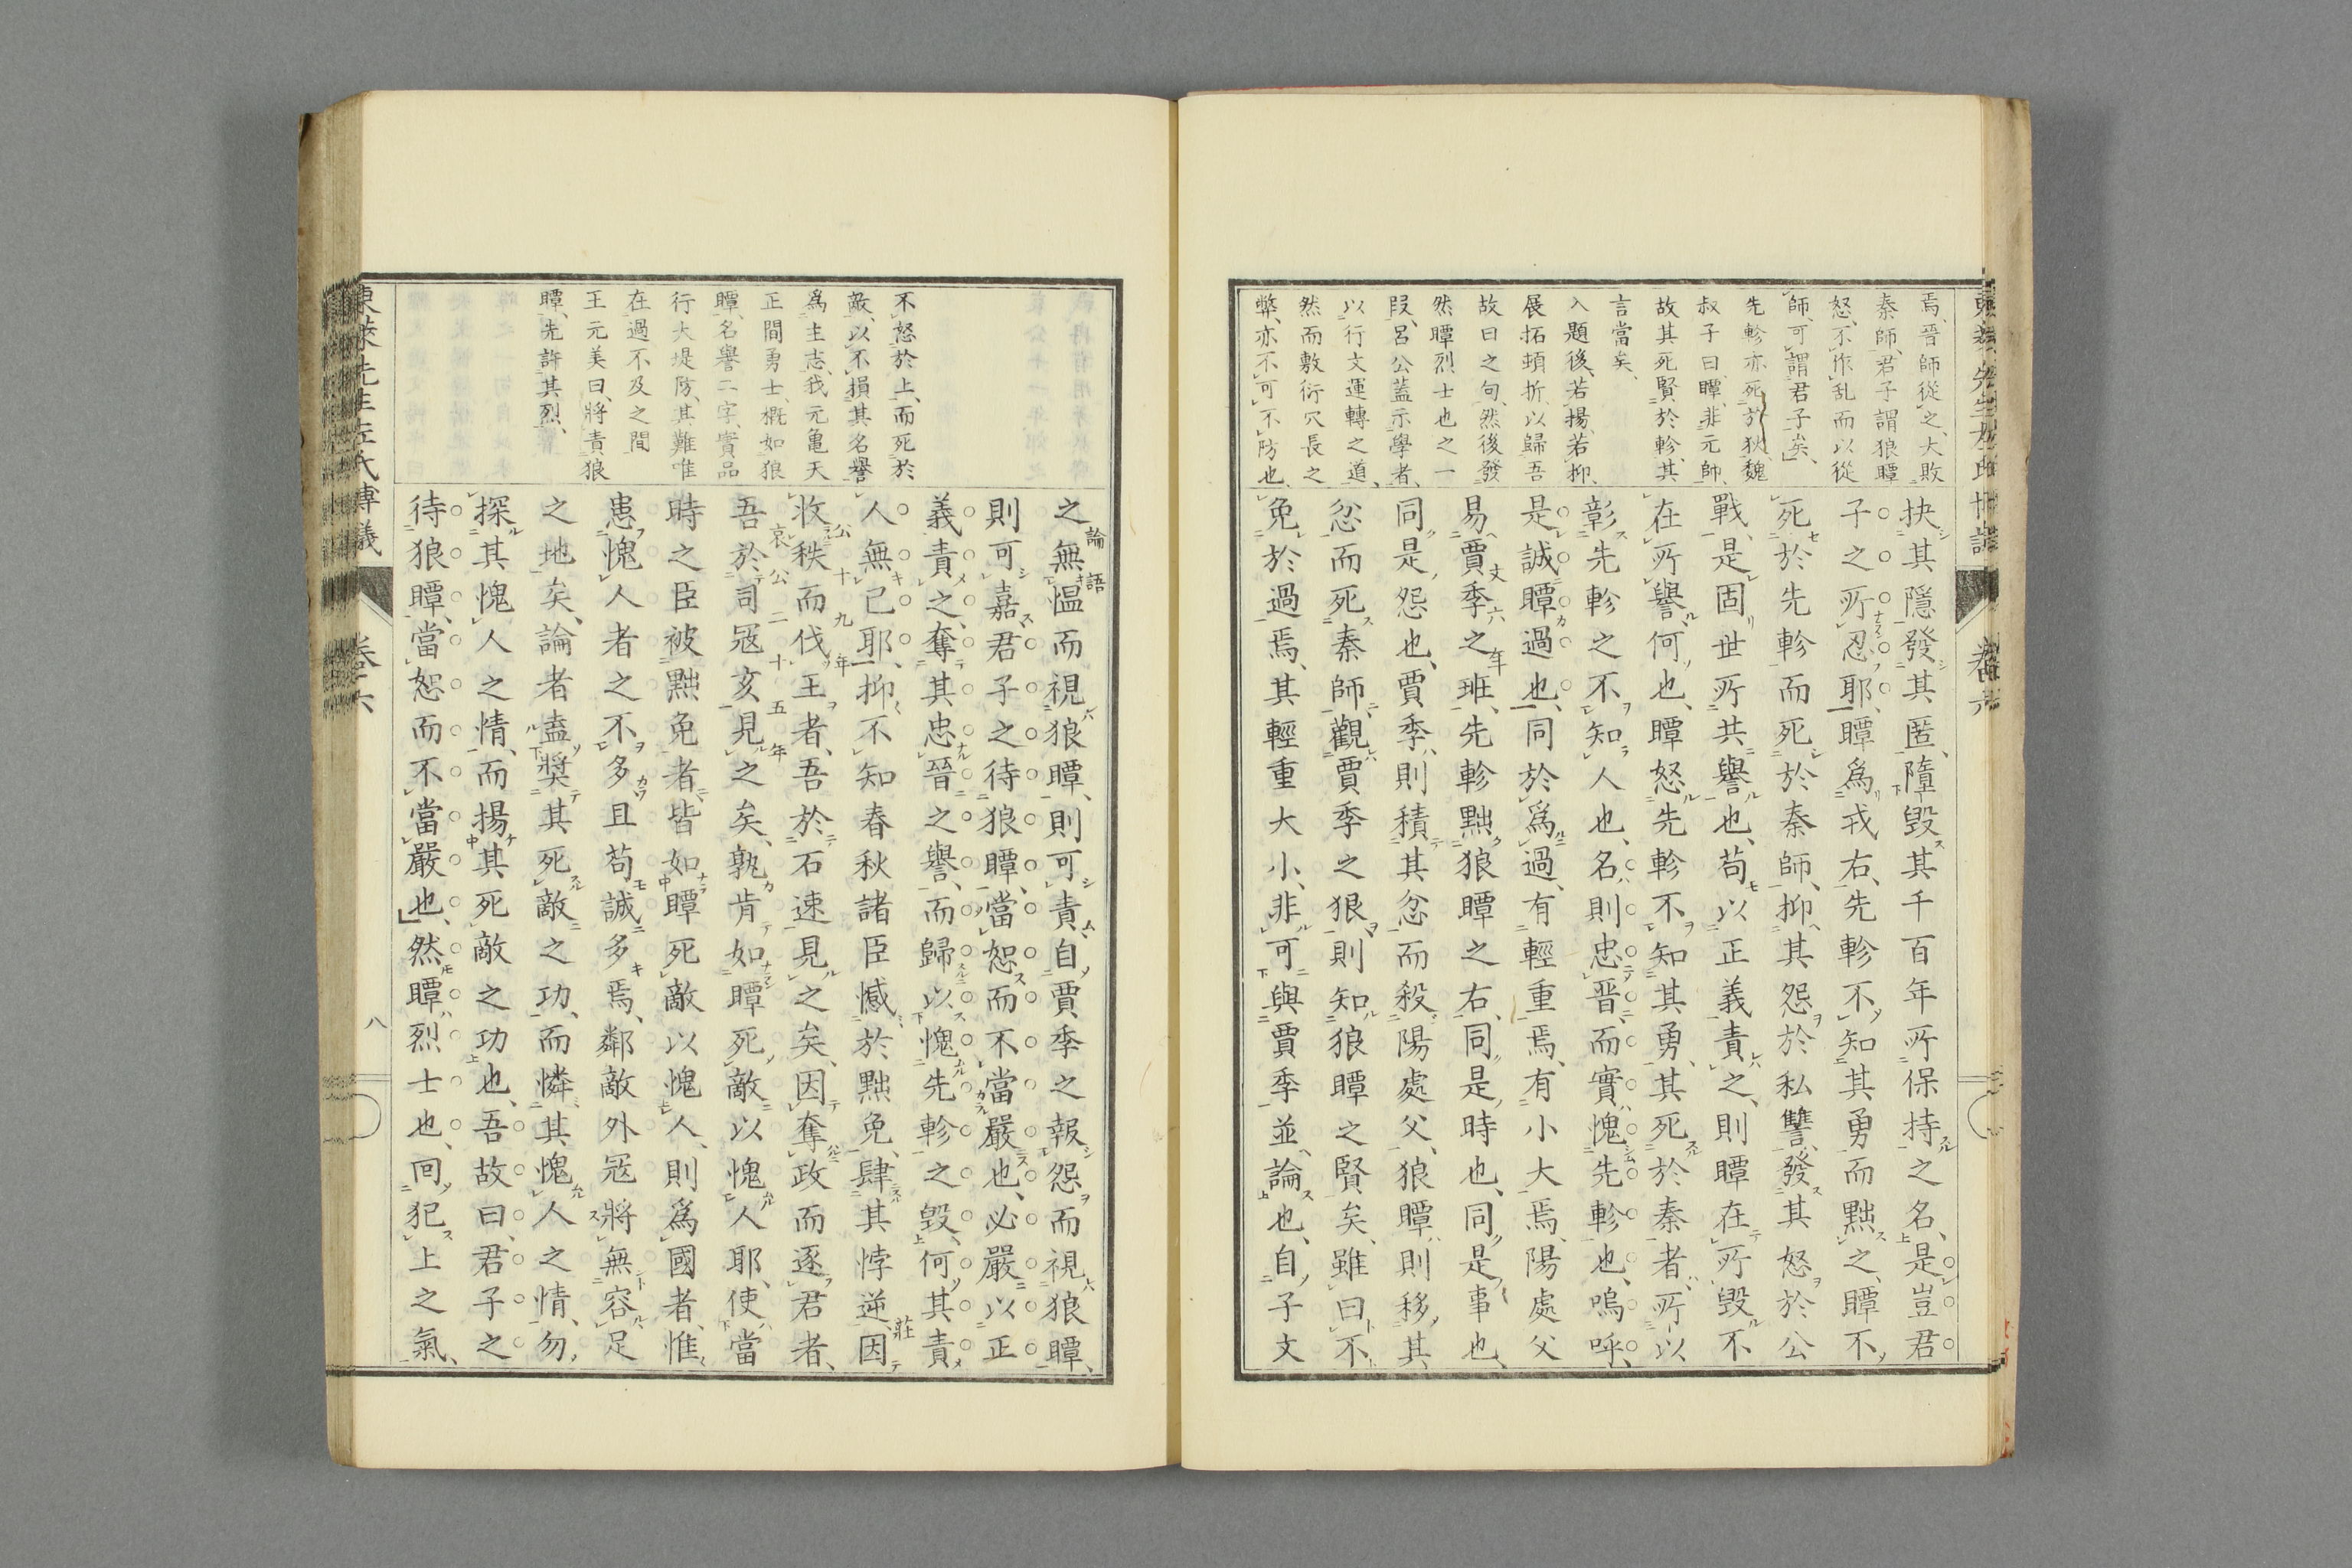 焉、晋師從之、大敗
秦師、君子謂狼瞫
怒、不作乱而以從
師、可謂君子矣、
先軫亦死於狄魏
叔子曰、瞫、非元帥、
故其死賢於軫、其
言當矣、
入題後、若揚、若抑、
展拓頓折、以歸吾
故曰之句、然後發
然瞫烈士也之一
段、呂公蓋示學者、
以行文運轉之道、
然而敷衍冗長之
弊、亦不可不防也、
抉其隱發其匿、隳毀其千百年所保持之名、是豈君
子之所忍耶、瞫爲戎右、先軫不知其勇而黜之、瞫不
死於先軫而死於秦師、抑其怨於私讐、發其怒於公
戰、是固世所共譽也、苟以正義責之、則瞫在所毀不
在所譽何也、瞫怒先軫不知其勇、其死於秦者、所以
彰先軫之不知人也、名則忠晋、而實愧先軫也、嗚呼、
是誠瞫過也、同於爲過、有輕重焉、有小大焉、陽處父
易賈季之班、先軫黜狼瞫之右、同是時也、同是事也、
文六年
同是怨也、賈季則積其忿而殺陽處父、狼瞫則移其
忿而死秦師、觀賈季之狠、則知狼瞫之賢矣、雖曰不
免於過焉、其輕重大小、非可與賈季並論也、自子文
不怒於上、而死於
敵、以不損其名譽
爲主志、我元亀天
正間勇士、概如狼
瞫、名譽二字、實品
行大堤防、其難唯
在過不及之間
王元美曰、將責狼
瞫、先許其烈、
之無慍而視狼瞫、則可責、自賈季之報怨而視狼瞫、
論語
則可嘉、君子之待狼瞫、當恕而不當嚴也、必嚴以正
義責之、奪其忠晉之譽、而歸以愧先軫之毀、何其責
人無已耶、抑不知春秋諸臣憾於黜免、肆其悖逆、因
莊公十九年
收秩而伐王者、吾於石速見之矣、因奪政而逐君者、
吾於司冦亥見之矣、孰肯如瞫死敵以愧人耶、使當
哀公二十五年
時之臣被黜免者、皆如瞫死敵以愧人、則爲國者、惟
患愧人者之不多且苟誠多焉、鄰敵外冦將無容足
之地矣、論者盍奬其死敵之功、而憐其愧人之情、勿
探其愧人之情、而揚其死敵之功也、吾故曰、君子之
待狼瞫、當恕而不當嚴也、然瞫烈士也、同犯上之氣、
東萊先生左氏博議 卷六 八